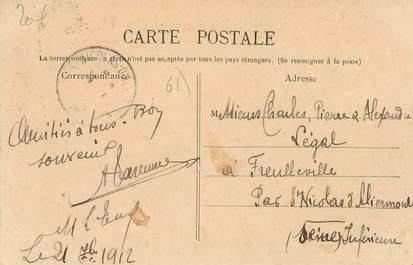 20f
CARTE POSTALE
La correspondance au recto n'est pas acceptée par tous les pays étrangers. (Se renseigner à la poste)
Correspondance
Adresse
61)
Amitiés à tous. Bon
souvenir
Le 21 1912
M Mieurs Charles, Pierre & Alexandre
Légal
à Freulleville
Par St Nicolas d'Aliermont
(Seine Inférieure